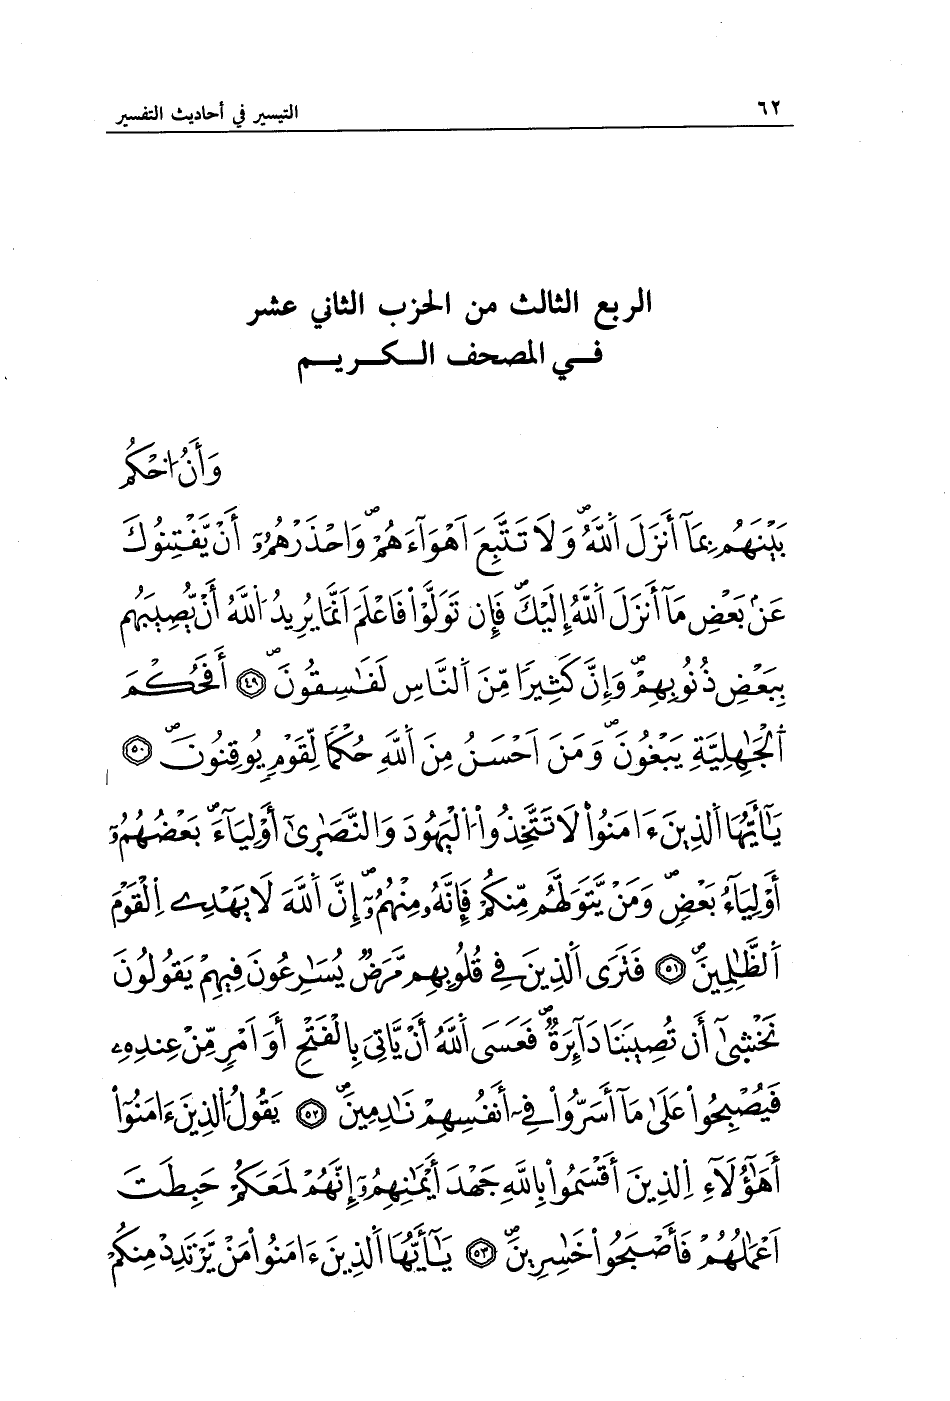 ٦٢
التيسير في أحاديث التفسير
الربع الثالث من الحزب الثاني عشر
في المصحف الكريم
وَأَنُ اِحْكُم
بَيْنَهُم بِمَآ أَنزَلَ اَللَّهُ وَلَا تَتَّبِعَ اَهْوَآءَهُمْ وَاحْذَرْهُمُۥٓ أَنْ يَّفْتِنُوكَ
عَنۢ بَعْضِ مَآ أَنزَلَ اَللَّهُ إِلَيْكَ فَإِن تَوَلَّوْاْ فَاعْلَمَ اَنَّمَا يُرِيدُ اُللَّهُ أَنْ يُّصِيبَهُم
بِبَعْضِ ذُنُوبِهِمْ وَإِنَّ كَثِيرًا مِّنَ اَلنَّاسِ لَفَٰسِقُونَ ٤٩ أَفَحُكْمَ
اَلْجَٰهِلِيَّةِ يَبْغُونَ وَمَنَ اَحْسَنُ مِنَ اَللَّهِ حُكْمًا لِّقَوْمٍ يُوقِنُونَ ٥٠
يَٰٓأَيُّهَا اَلذِينَ ءَامَنُواْ لَا تَتَّخِذُواْ اُلْيَهُودَ وَالنَّصَٰرَىٰٓ أَوْلِيَآءَ بَعْضُهُمُۥٓ
أَوْلِيَآءُ بَعْضٍ وَمَنْ يَّتَوَلَّهُم مِّنكُمْ فَإِنَّهُۥ مِنْهُمُۥٓ إِنَّ اَللَّهَ لَا يَهْدِے اِلْقَوْمَ
اَلظَّٰلِمِينَ ٥١ فَتَرَى اَلذِينَ فِے قُلُوبِهِم مَّرَضٌ يُسَٰرِعُونَ فِيهِمْ يَقُولُونَ
نَخْشَىٰٓ أَن تُصِيبَنَا دَآئِرَةٌ فَعَسَى اَللَّهُ أَنْ يَّاتِيَ بِالْفَتْحِ أَوَ اَمْرٍ مِّنْ عِندِهِۦ
فَيُصْبِحُواْ عَلَىٰ مَآ أَسَرُّواْ فِےٓ أَنفُسِهِمْ نَٰدِمِينَ ٥٢ يَقُولُ اُلذِينَ ءَامَنُوٓاْ
أَهَٰٓؤُلَآءِ اِلذِينَ أَقْسَمُواْ بِاللَّهِ جَهْدَ أَيْمَٰنِهِمُۥٓ إِنَّهُمْ لَمَعَكُمْ حَبِطَتَ
اَعْمَٰلُهُمْ فَأَصْبَحُواْ خَٰسِرِينَ ٥٣ يَٰٓأَيُّهَا اَلذِينَ ءَامَنُواْ مَنْ يَّرْتَدِدْ مِنكُمْ